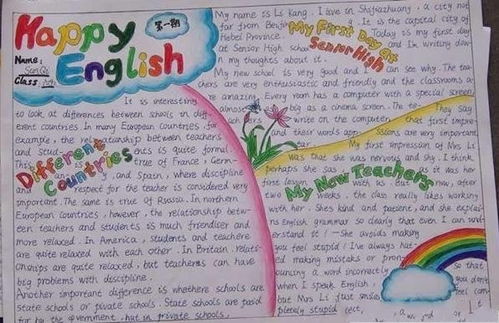 Happy
English
第一期
Name:
Class:
My First Day at
Senior High
My name is Li Kang. I live in Shijiazhuang, a city not
far from Beijing. It is the capital city of
Hebei Province. Today is my first day
at Senior High school and I'm writing down
my thoughts about it.
My new school is very good and I can see why. The tea-
chers are very enthusiastic and friendly and the classrooms a-
re amazing. Every room has a computer with a special screen,
big as a cinema screen. The te- They say
achers write on the computer that first impre-
and their words app ssions are very important
My first impression of Mrs Li
was that she was nervous and shy. I think
perhaps she was as it was her
first lesson with us. But now, after
two weeks, the class really likes working
with her. She's kind and patient, and she explai-
ns English grammar so clearly that even I can und-
erstand it! — She avoids making
you feel stupid! I've always hat-
ed making mistakes or pron-
ouncing a word incorrectly
when I speak English, so that
but Mrs Li just smiles, you don't feel
completely stupid
My New Teachers
Different
Countries
It is interesting
to look at differences between schools in diff-
erent countries. In many European countries for
example, the relationship between teachers
and students is quite formal.
This is true of France, Germ-
any, and Spain, where discipline
and respect for the teacher is considered very
important. The same is true of Russia. In northern
European countries, however, the relationship betw-
een teachers and students is much friendlier and
more relaxed. In America, students and teachers
are quite relaxed with each other. In Britain, relati-
onships are quite relaxed, but teachers can have
big problems with discipline.
Another important difference is whether schools are
state schools or private schools. State schools are paid
for by the government, but in private schools,